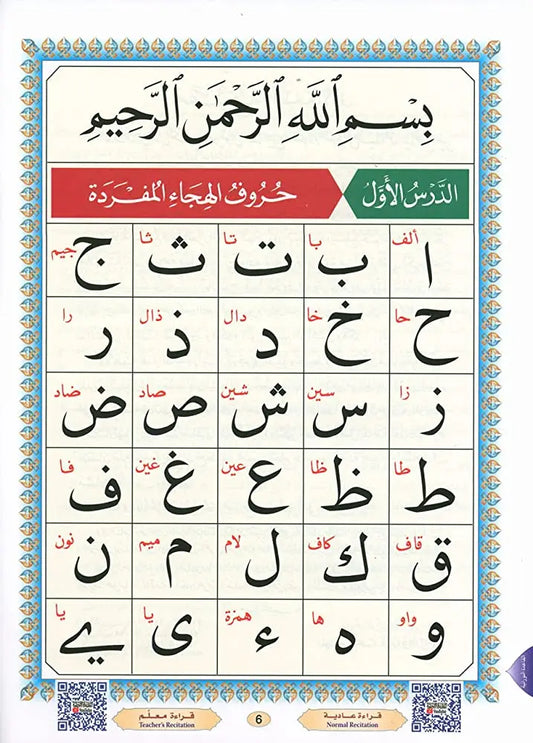 بِسْمِ ٱللَّهِ ٱلرَّحْمَٰنِ ٱلرَّحِيمِ
الدَّرْسُ الأَوَّلُ
حُرُوفُ الهِجَاءِ المُفْرَدَةِ
ألف ا با ب تا ت ثا ث جيم ج
حا ح خا خ دال د ذال ذ را ر
زا ز سين س شين ش صاد ص ضاد ض
طا ط ظا ظ عين ع غين غ فا ف
قاف ق كاف ك لام ل ميم م نون ن
واو و ها ه همزة ء يا ى يا ے
قراءة عادية
Normal Recitation
6
قراءة معلّم
Teacher's Recitation